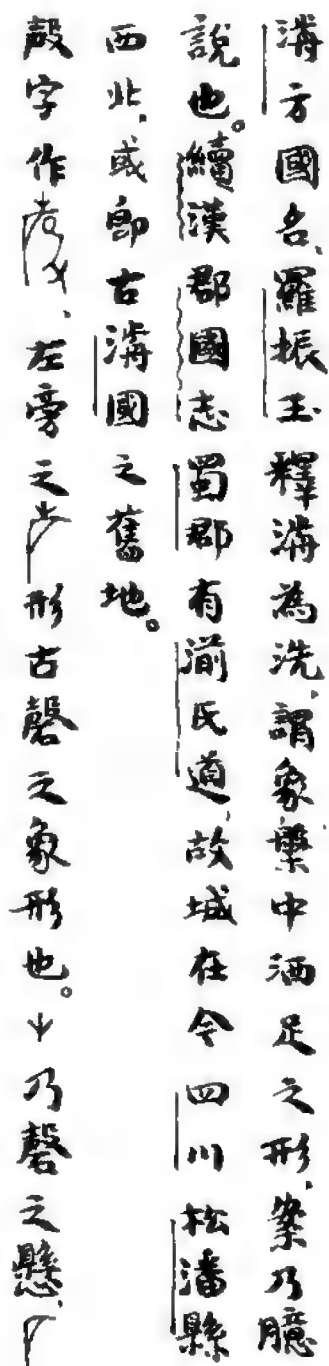 湔方國名、羅振玉釋湔為洗、謂象槃中洒足之形、案乃臆
說也。續漢郡國志蜀郡有湔氐道、故城在今四川松潘縣
西北、或卽古湔國之舊地。
殸字作、左旁之形古磬之象形也。乃磬之懸、